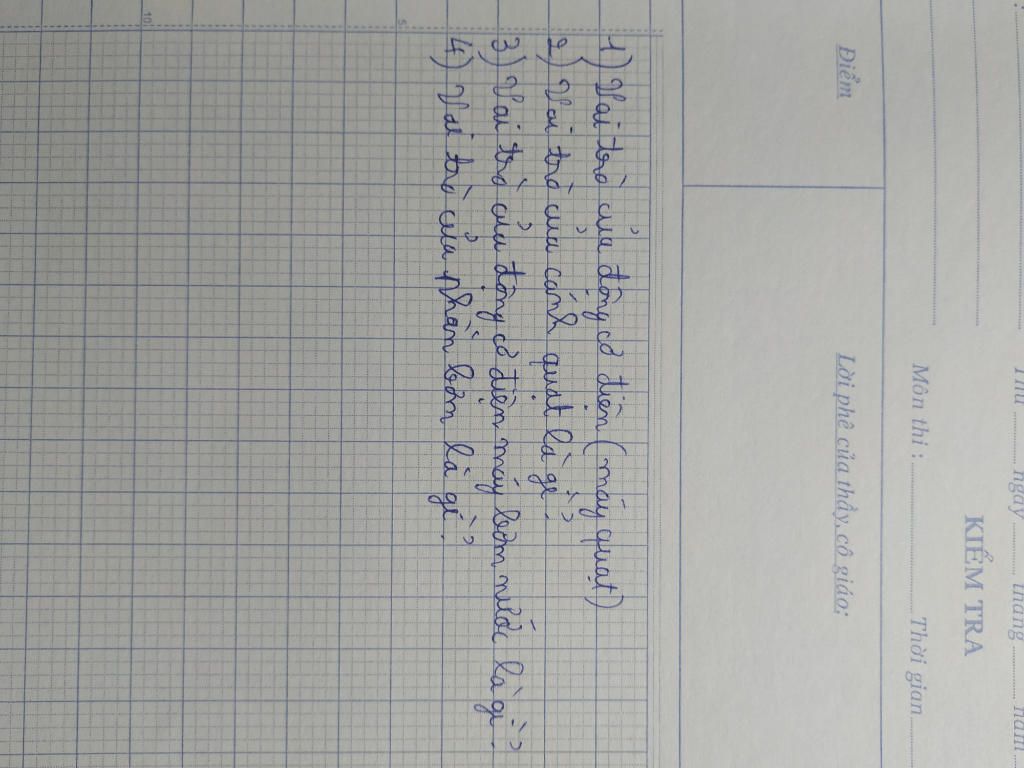 Thứ ........ ngày ........ tháng ........ năm
KIỂM TRA
Môn thi : ........ Thời gian ........
Điểm
Lời phê của thầy, cô giáo:
1) Vai trò của động cơ điện (máy quạt)
2) Vai trò của cánh quạt là gì?
3) Vai trò của động cơ điện máy bơm nước là gì?
4) Vai trò của phần bơm là gì?
5
10